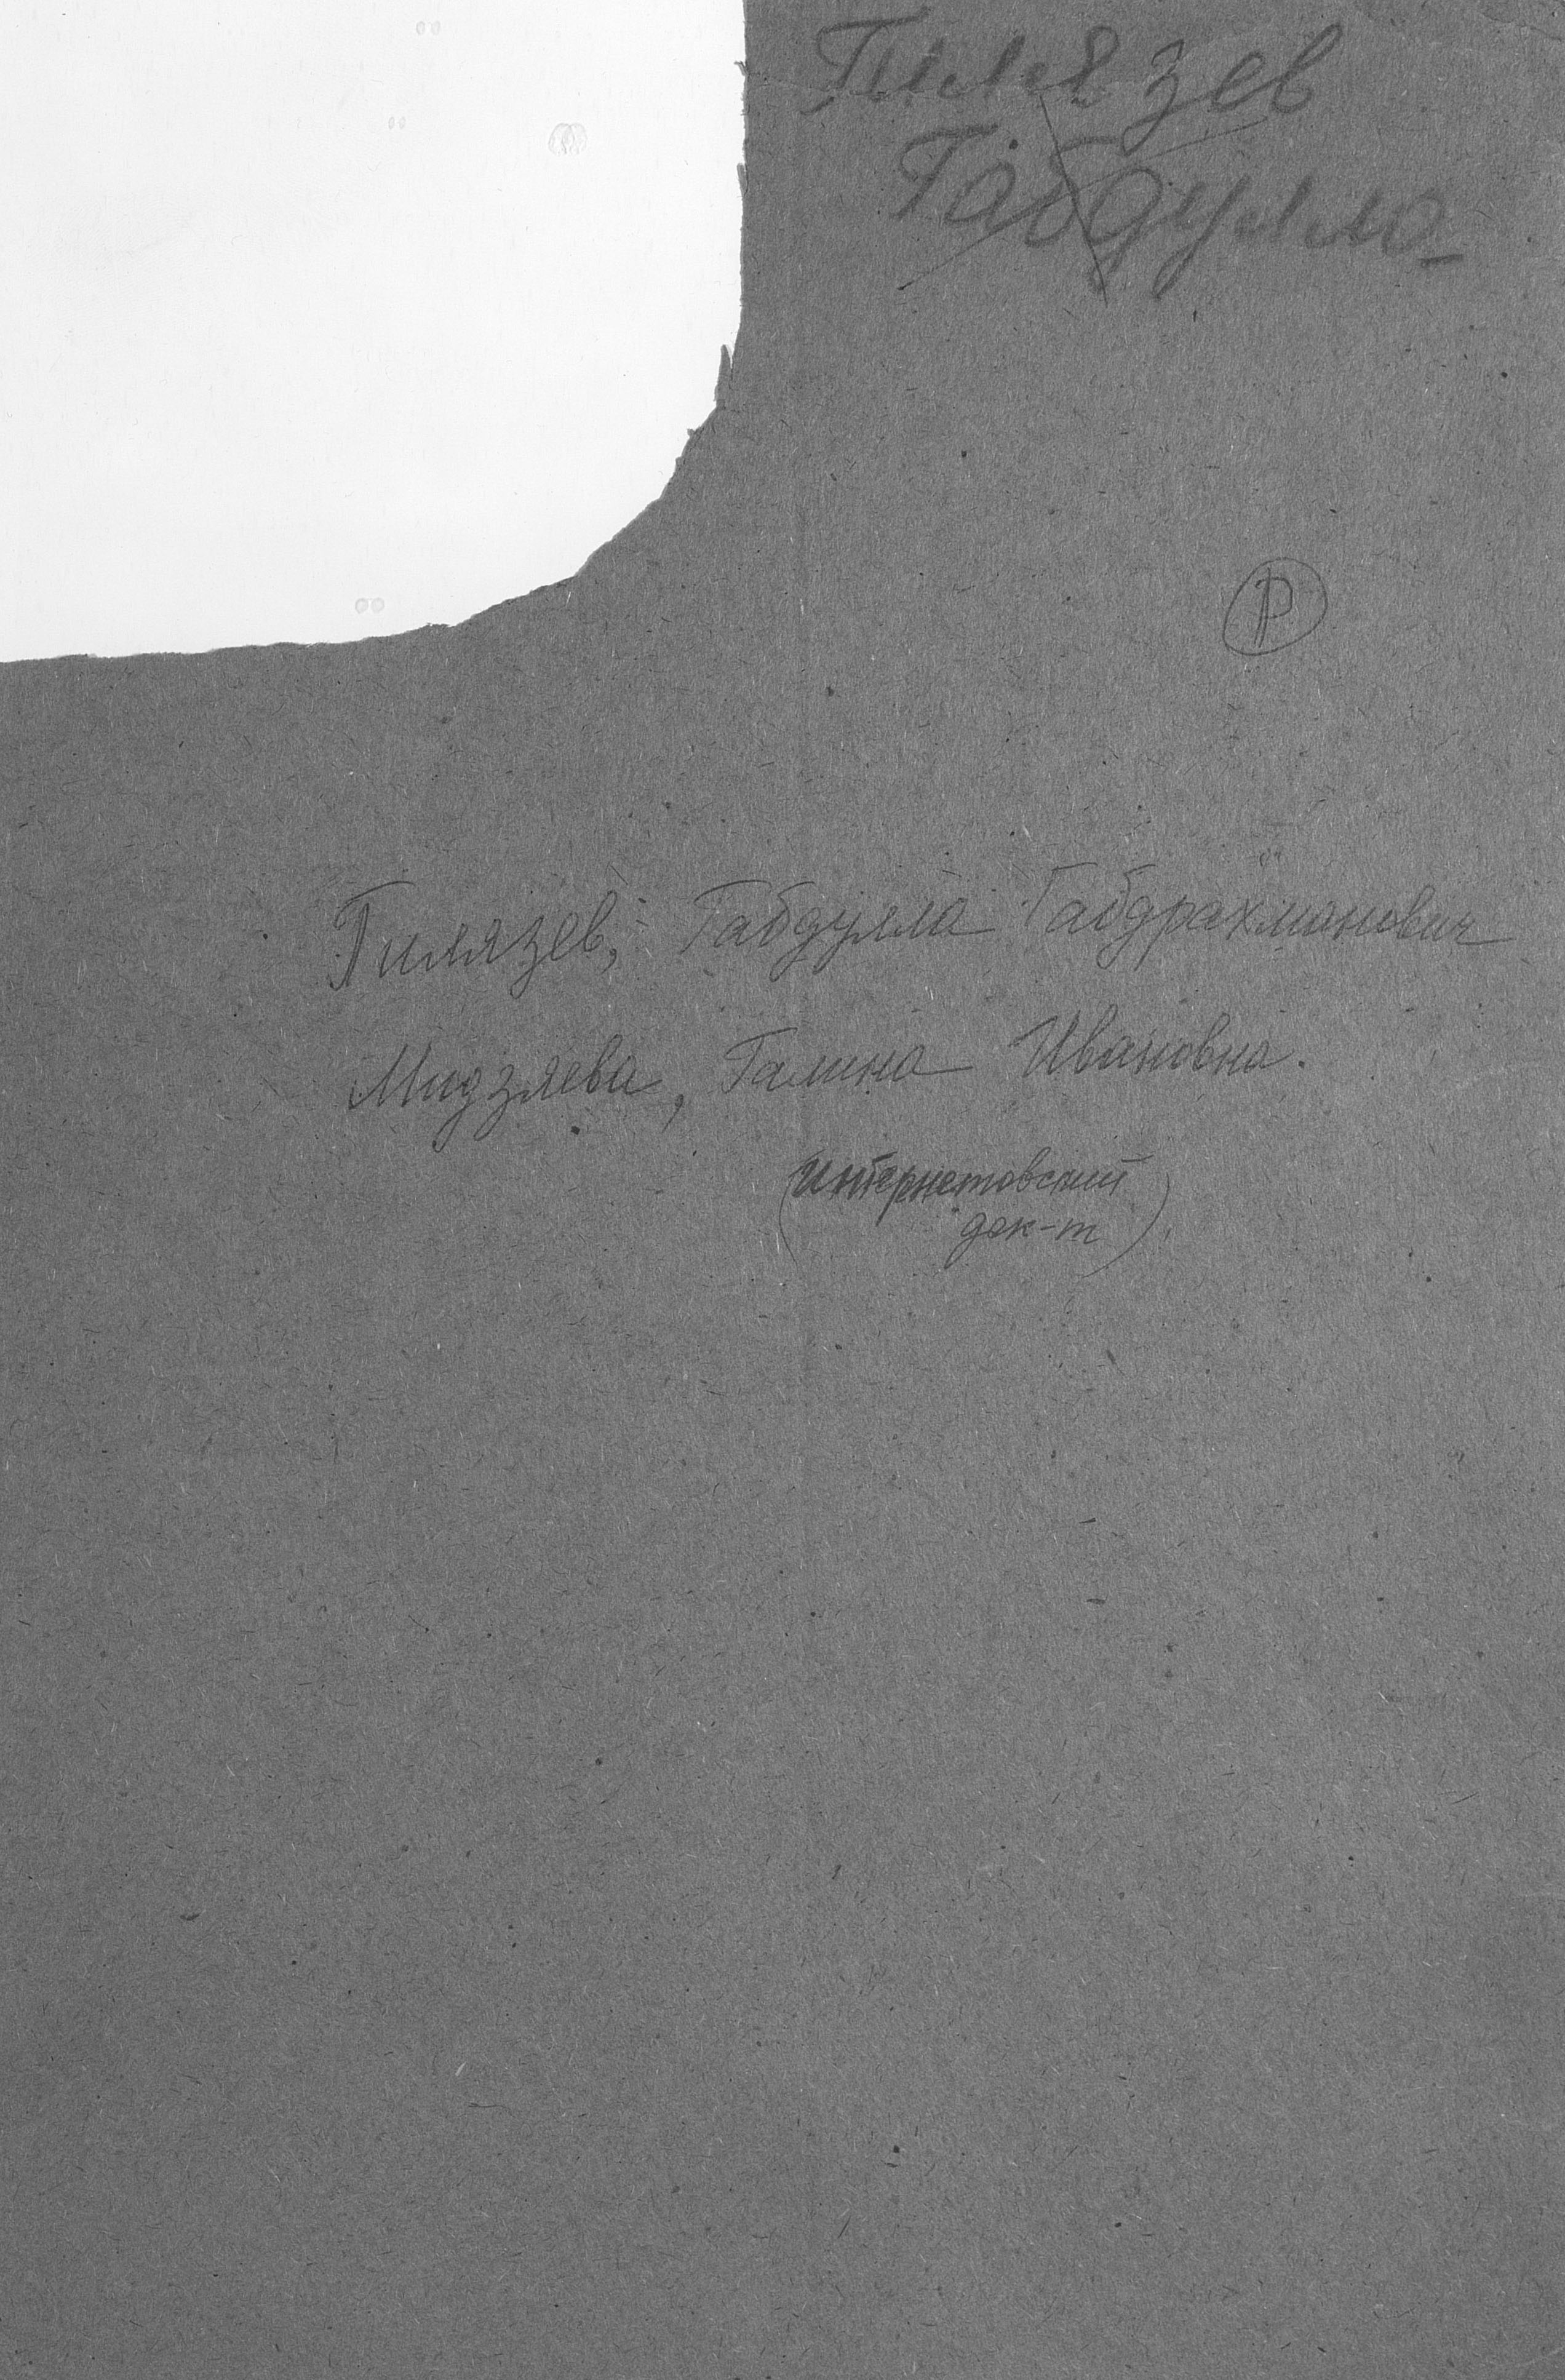 Гилязев
Габдулла
Р
Гилязев, Габдулла Габдрахманович
Мидзяева, Галина Ивановна.
(интернетовский
док-т)